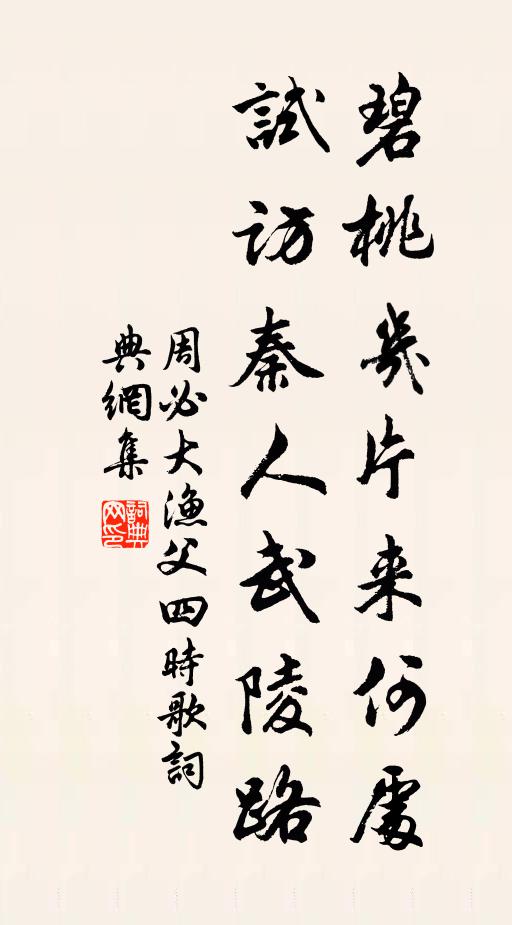 碧桃幾片来何處
試訪秦人武陵路
周必大漁父四時歌詞
典網集
詞典网印